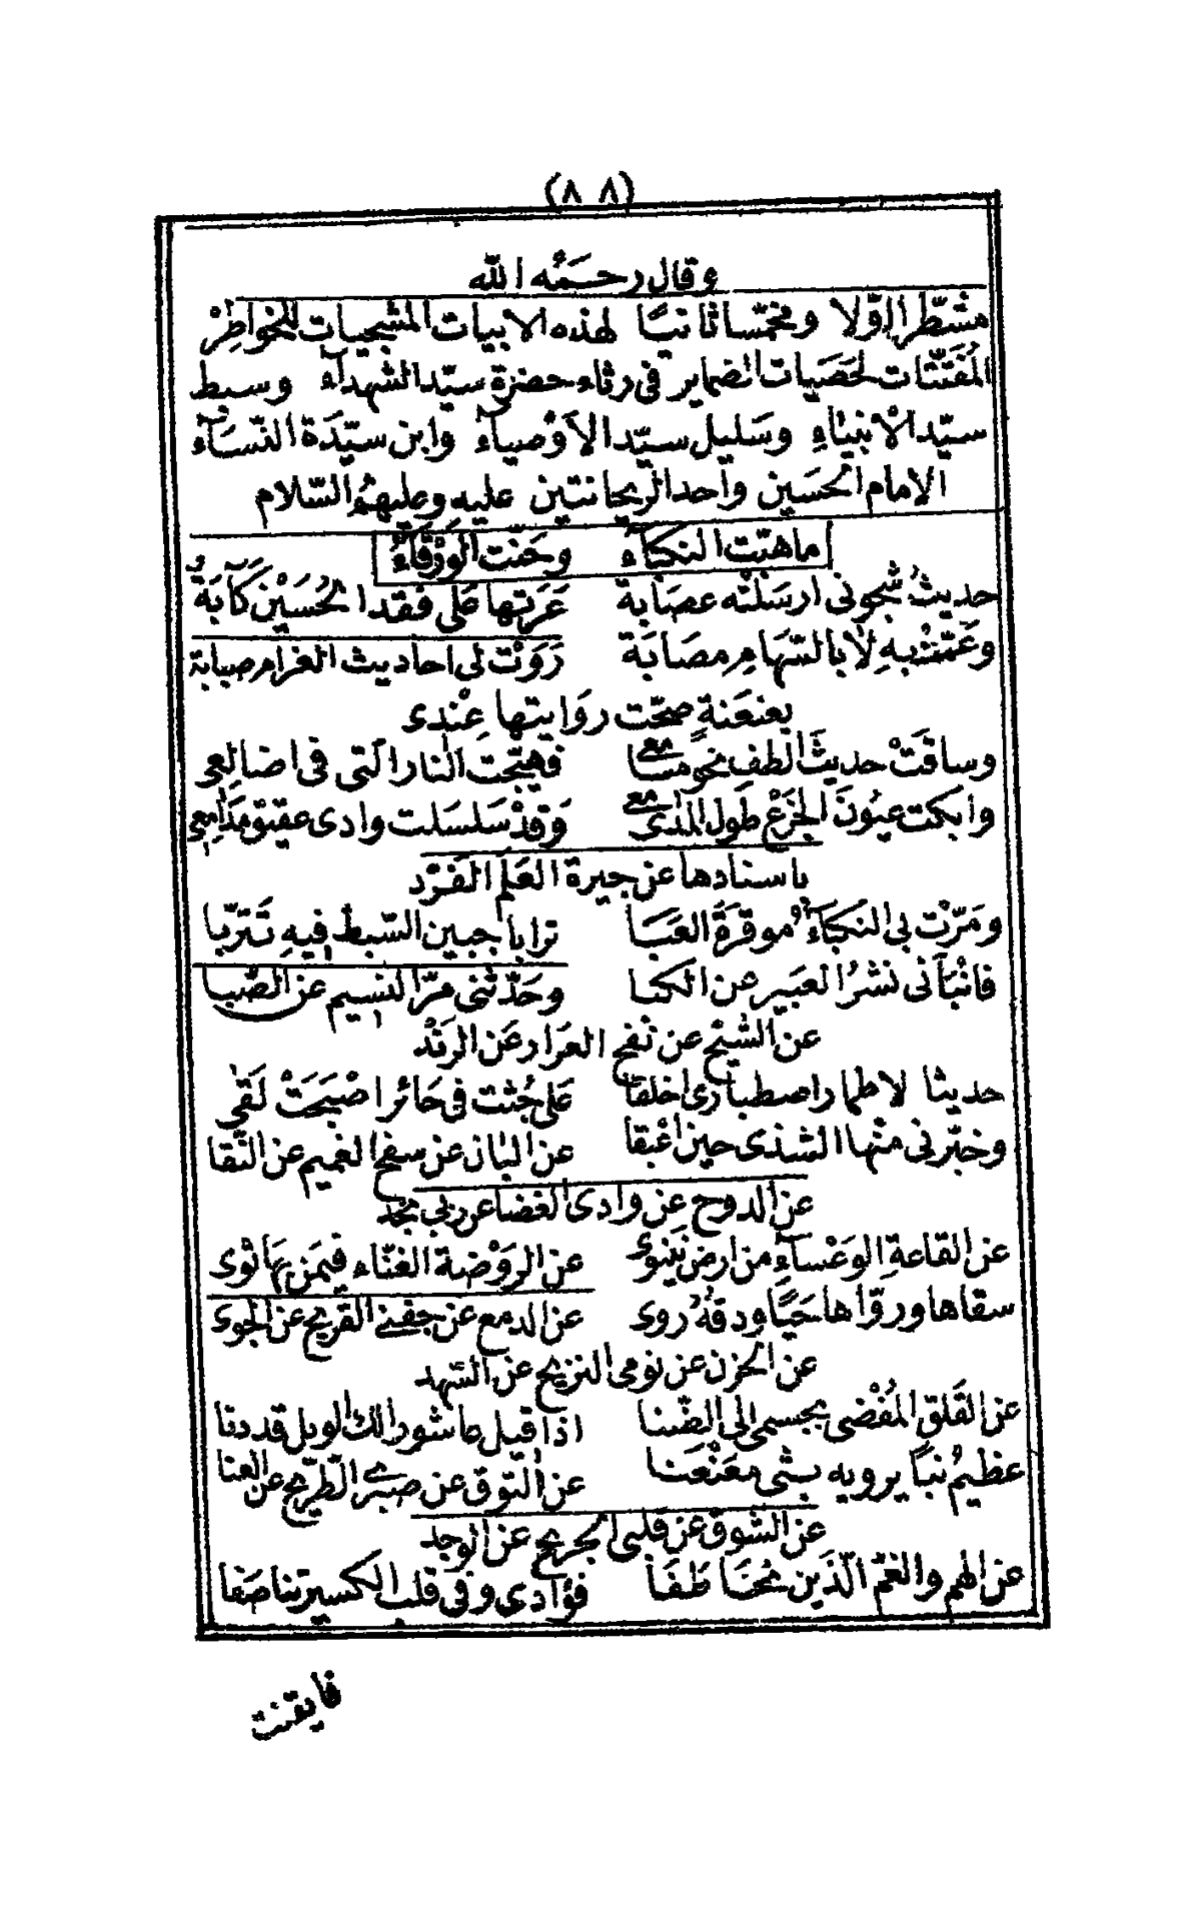 (٨٨)
وقال رحمه الله
مشطّرا اوّلا ومخمّسا ثانيًا لهذه الابيات المشجيات للخواطر
المفتّتات لحصيات الضماير فى رثاء حضرة سيّد الشهدآء وسبط
سيّد الانبياء وسليل سيّد الاوصياء وابن سيّدة النّسآء
الامام الحسين واحد الريحانتين عليه وعليهم السّلام
ما هبّت النكبآء وحنّت الورقآء
حديث شجونى ارسلته عصابة عرتها على فقد الحسين كآبة
وعتنى به لا بالسّهام مصابة روت لى احاديث الغرام صبابة
بعنعنة صحّت روايتها عندى
وساقت حديث الطف نحو مسامعى فهيّجت النار التى فى اضالعى
وابكت عيون الجزع طول المدى معى وقد سلسلت وادى عقيق مدامعى
باسنادها عن جيرة العلم الفرد
ومرّت بى النكبآء موقرة العبا ترابا جبين السّبط فيه تتربّا
فانبآنى نشر العبير عن الكبا وحدّثنى مرّ النسيم عن الصّبا
عن الشيح عن نفح العرار عن الرند
حديثا لاطمار اصطبارى اخلقا على جثت فى حائر اصبحت لقى
وخبّرنى منها الشذى حين اعبقا عن البان عن سفح الغميم عن النّقا
عن الدوح عن وادى الغضا عن ربى نجد
عن القاعة الوعسآء من ارض نينوى عن الروضة الغنّاء فيمن بها ثوى
سقاها وروّاها حيًا ودقه روى عن الدمع عن جفنى القريح عن الجوى
عن الحزن عن نومى النزيح عن السّهد
عن القلق المفضى بجسمى الى الضّنا اذا قيل عاشور الك الويل قد دنا
عظيم نبًا يرويه بثى معنعنا عن التّوق عن صبرى الطّريح عن العنا
عن الشوق عن قلبى الجريح عن الوجد
عن الهم والغمّ الّذين تخاطفا فؤادى وفى قلب الكسير تناصفا
فايقنت